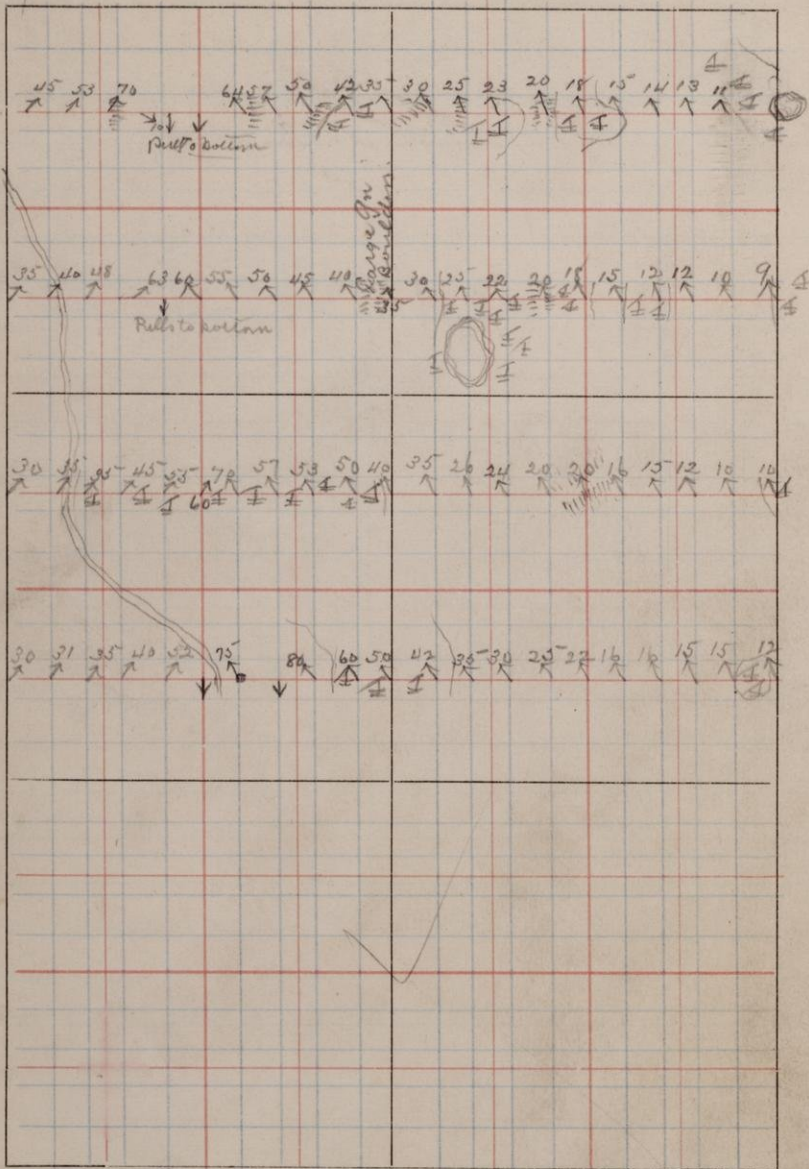 45 53 70 64 57 50 42 35 30 25 23 20 18 15 14 13 11
70
Pull to bottom
Large Gn
boulders.
35 40 48 63 60 55 50 45 40 35 30 25 22 20 18 15 12 12 10 9
Pulls to bottom
30 35 35 45 55 60 70 57 53 50 40 35 26 24 20 20 16 15 12 10 10
30 31 35 40 52 75 80 60 50 42 35 30 25 22 16 16 15 15 12